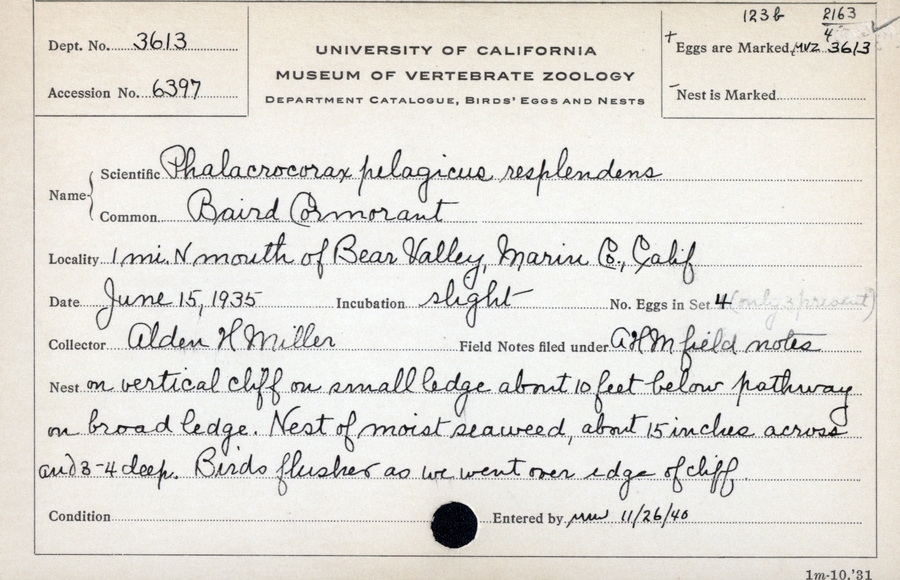 123b 2163/4
Dept. No. 3613
UNIVERSITY OF CALIFORNIA
+ Eggs are Marked MVZ 3613
MUSEUM OF VERTEBRATE ZOOLOGY
Accession No. 6397
DEPARTMENT CATALOGUE, BIRDS' EGGS AND NESTS
- Nest is Marked
Name { Scientific Phalacrocorax pelagicus resplendens
Common Baird Cormorant
Locality 1 mi. N mouth of Bear Valley, Marin Co., Calif
Date June 15, 1935 Incubation slight No. Eggs in Set 4 (only 3 present)
Collector Alden H Miller Field Notes filed under AHM field notes
Nest on vertical cliff on small ledge about 10 feet below pathway
on broad ledge. Nest of moist seaweed, about 15 inches across
and 3-4 deep. Birds flushed as we went over edge of cliff.
Condition Entered by 11/26/40
1m-10,'31